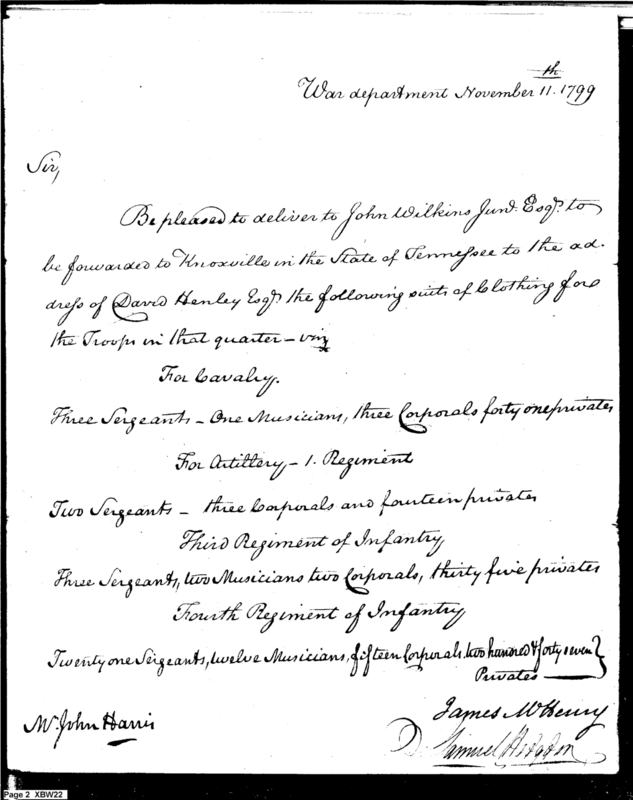 War department November 11.th 1799
Sir,
Be pleased to deliver to John Wilkins Junr. Esqr. to
be forwarded to Knoxville in the State of Tennessee to the ad-
dress of David Henley Esqr. the following suits of Clothing for
the Troops in that quarter – viz
For Cavalry.
Three Sergeants – One Musicians, three Corporals forty one privates
For Artillery – 1. Regiment
Two Sergeants – three Corporals and fourteen privates
Third Regiment of Infantry
Three Sergeants, two Musicians two Corporals, thirty five privates
Fourth Regiment of Infantry
Twenty one Sergeants, twelve Musicians, fifteen Corporals, two hundred & forty seven
Privates
James McHenry
Mr. John Harris
Samuel Hodgdon
Page 2 XBW22